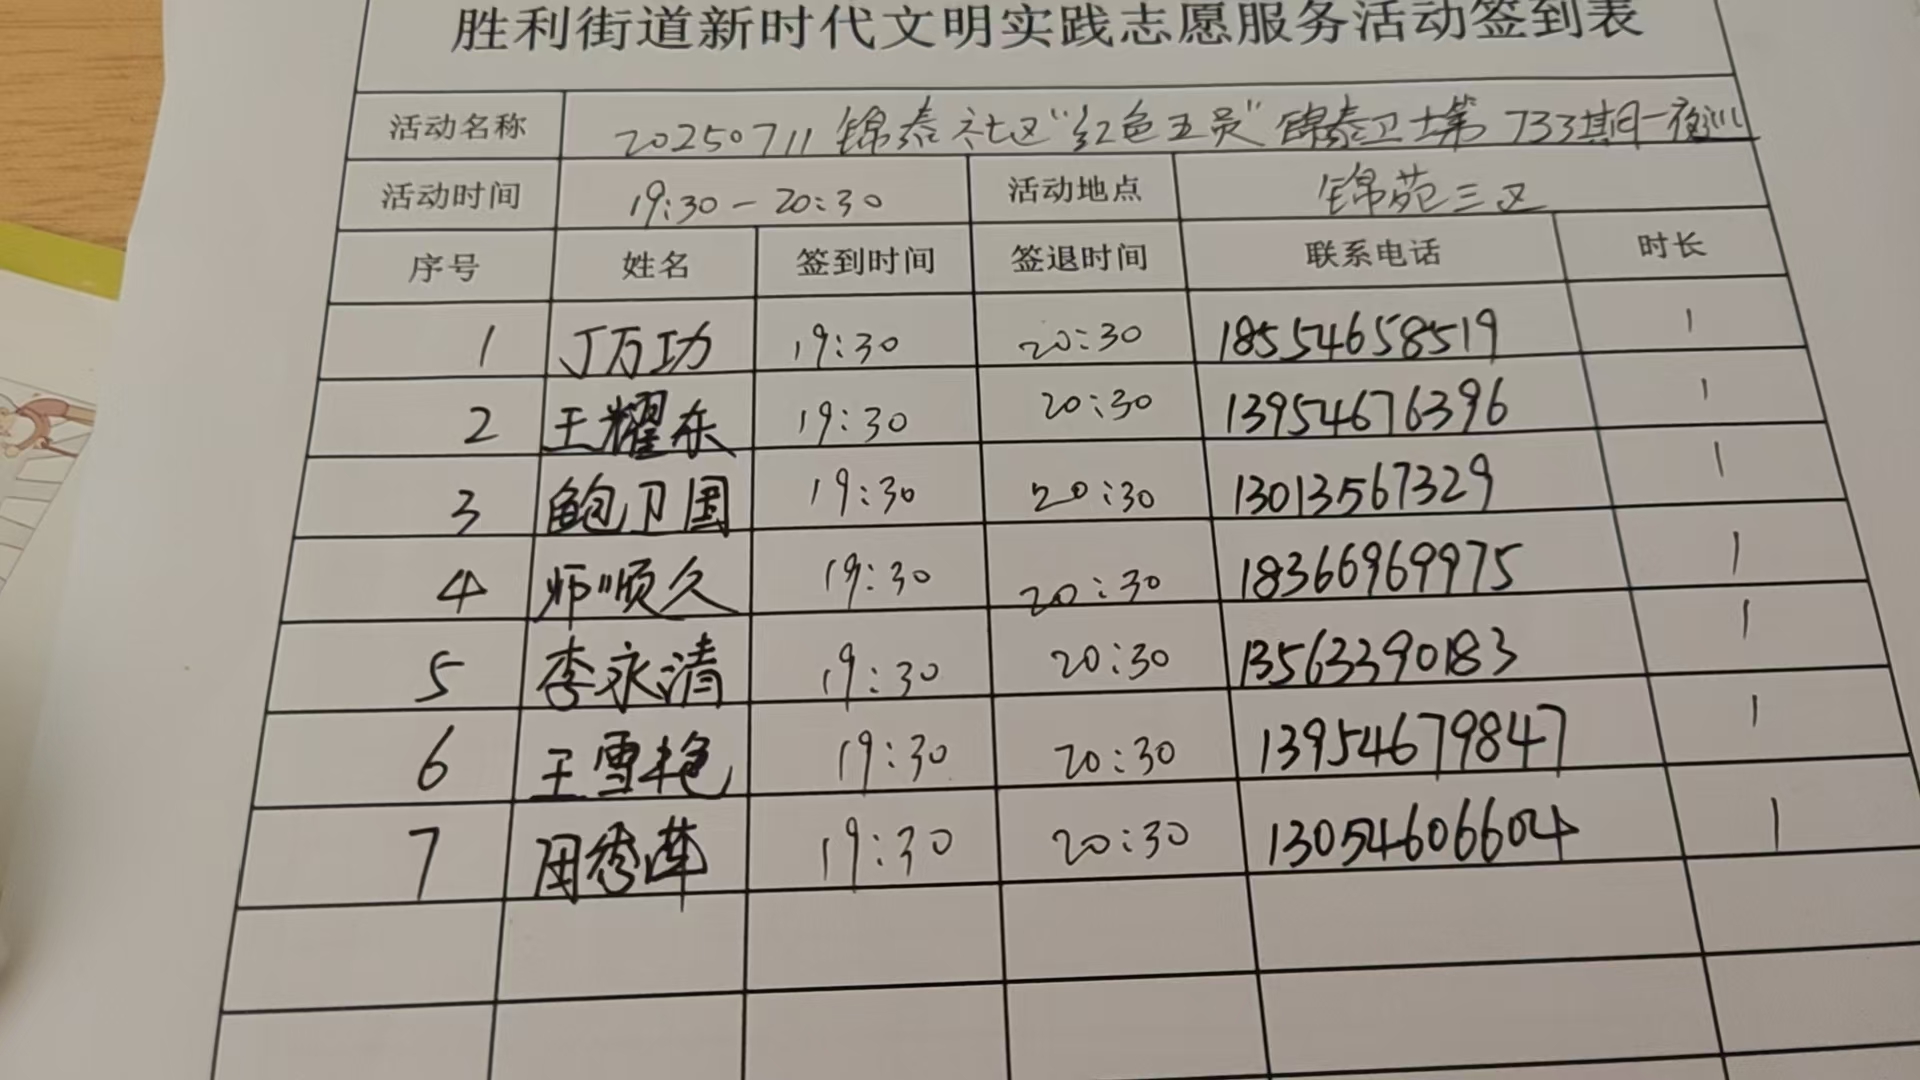 胜利街道新时代文明实践志愿服务活动签到表
活动名称 20250711锦泰社区“红色五员”锦泰卫士第733期一夜巡
活动时间 19:30-20:30 活动地点 锦苑三区
序号 姓名 签到时间 签退时间 联系电话 时长
1 丁万功 19:30 20:30 18554658519 1
2 王耀东 19:30 20:30 13954676396 1
3 鲍卫国 19:30 20:30 13013567329 1
4 师顺久 19:30 20:30 18366969975 1
5 李永清 19:30 20:30 13563390183 1
6 王雪艳 19:30 20:30 13954679847 1
7 周秀莲 19:30 20:30 13054606604 1